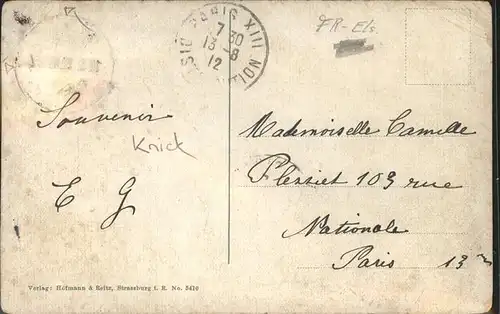 PARIS XIII
7 30
13-8
12
DIST
FR-Els.
Souvenir
Knick
E G
Mademoiselle Camille
Plessiet 103 rue
Nationale
Paris 13
Verlag: Hofmann & Reitz, Strassburg i. E. No. 5410